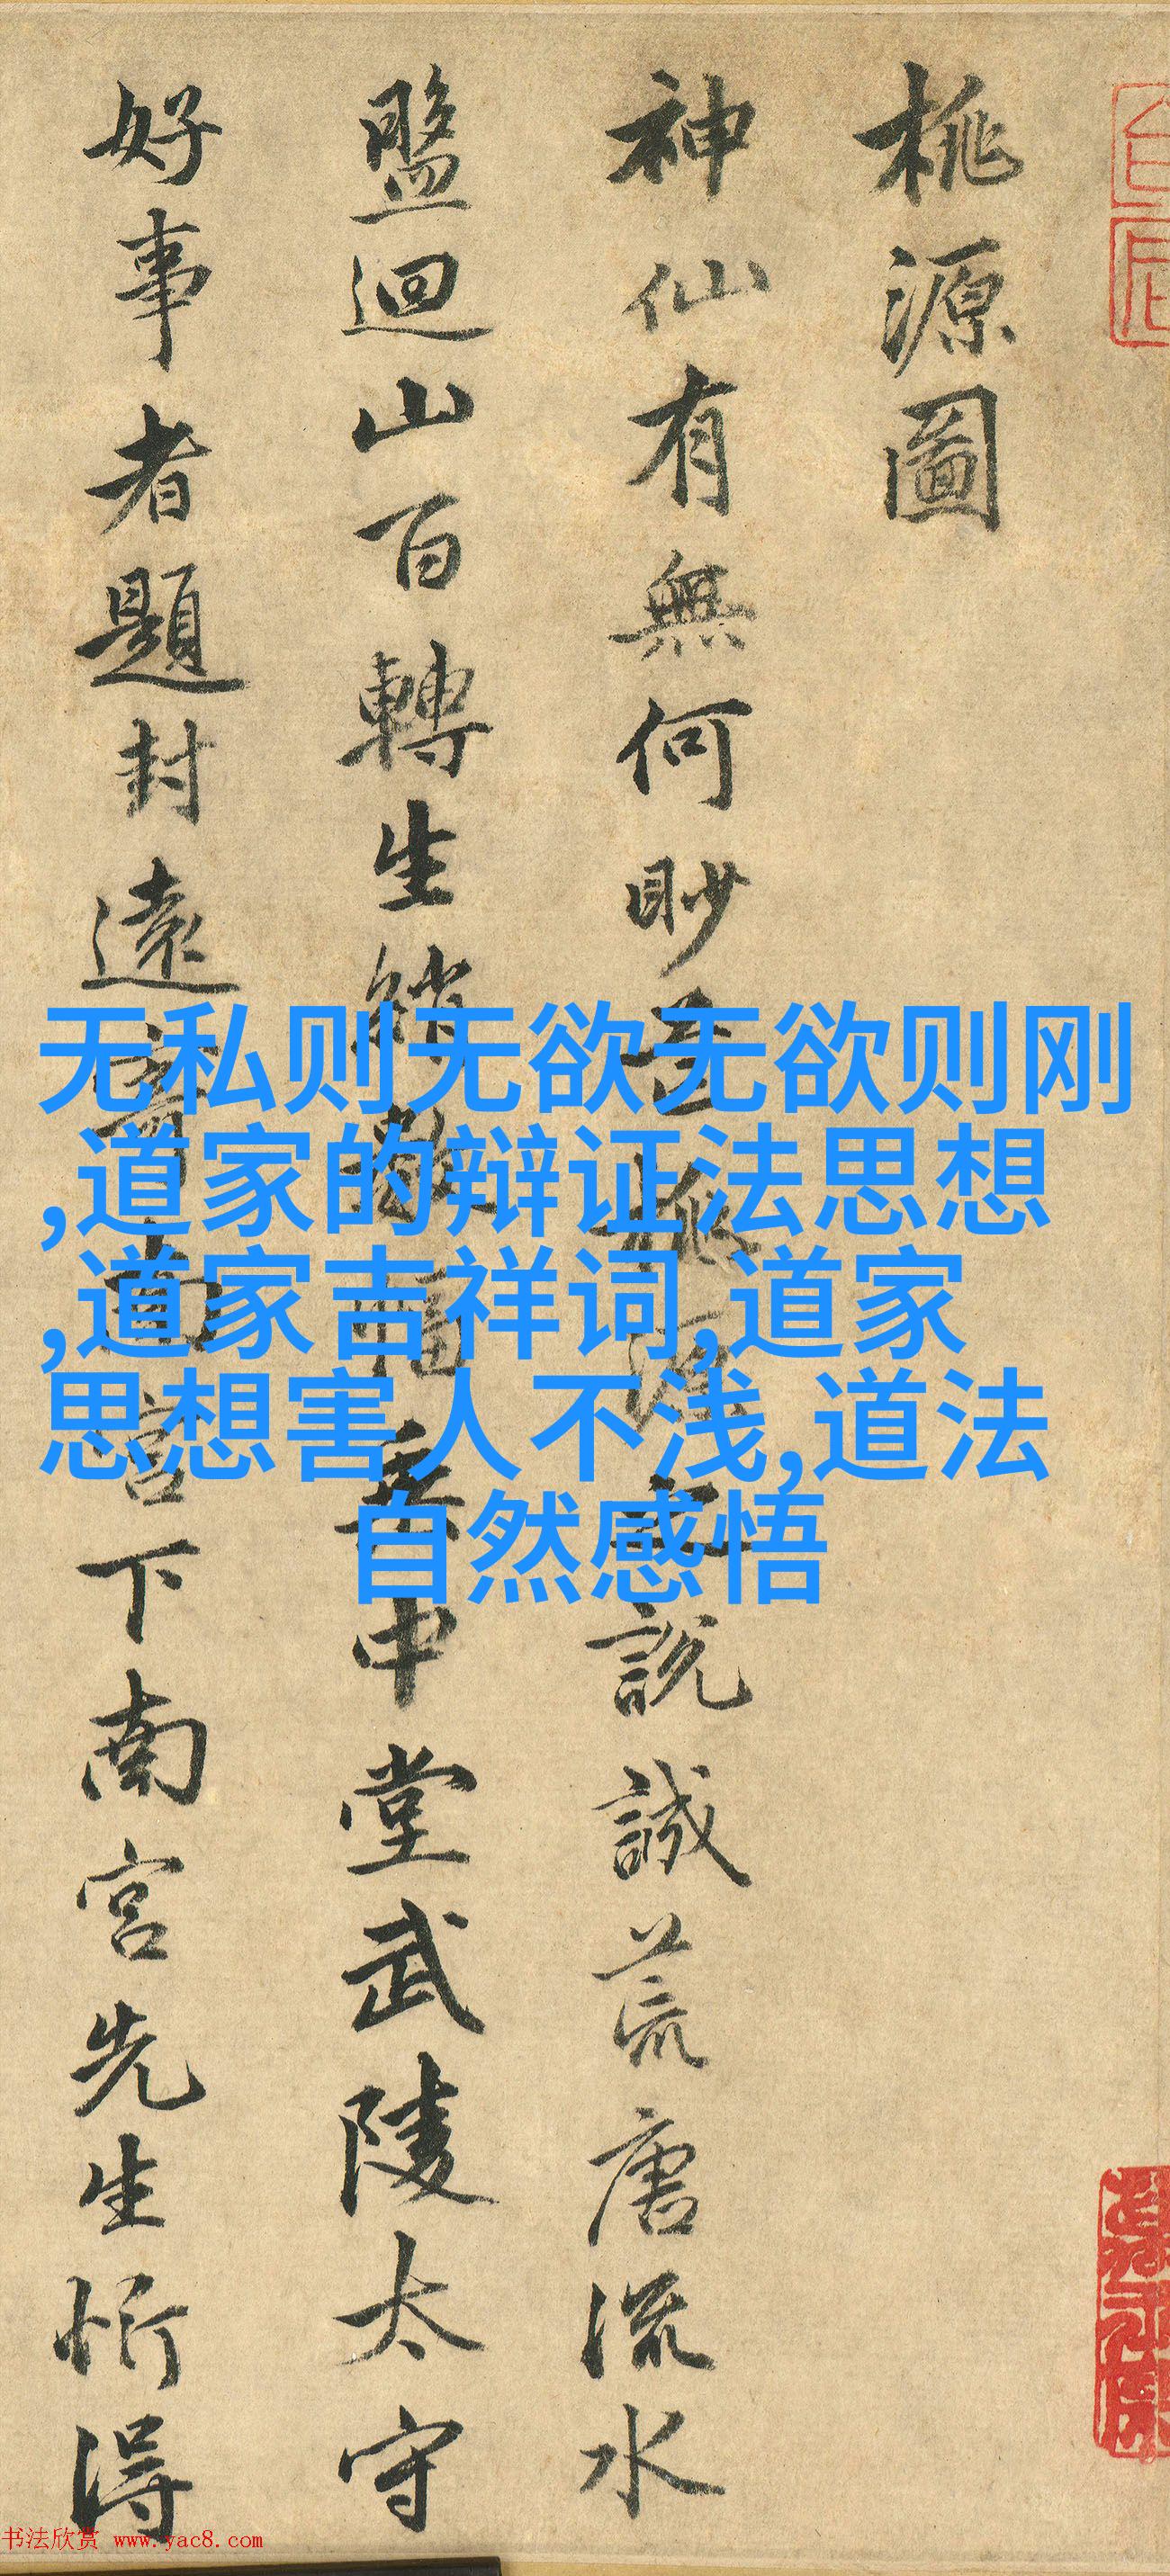 桃源圖
神仙有無何眇芒桃源之說誠荒唐流水
盤迴山百轉生綃數幅垂中堂武陵太守
好事者題封遠寄南宮下南宮先生忻得
无私则无欲无欲则刚
,道家的辩证法思想
,道家吉祥词,道家
思想害人不浅,道法
自然感悟
书法欣赏 www.yac8.com